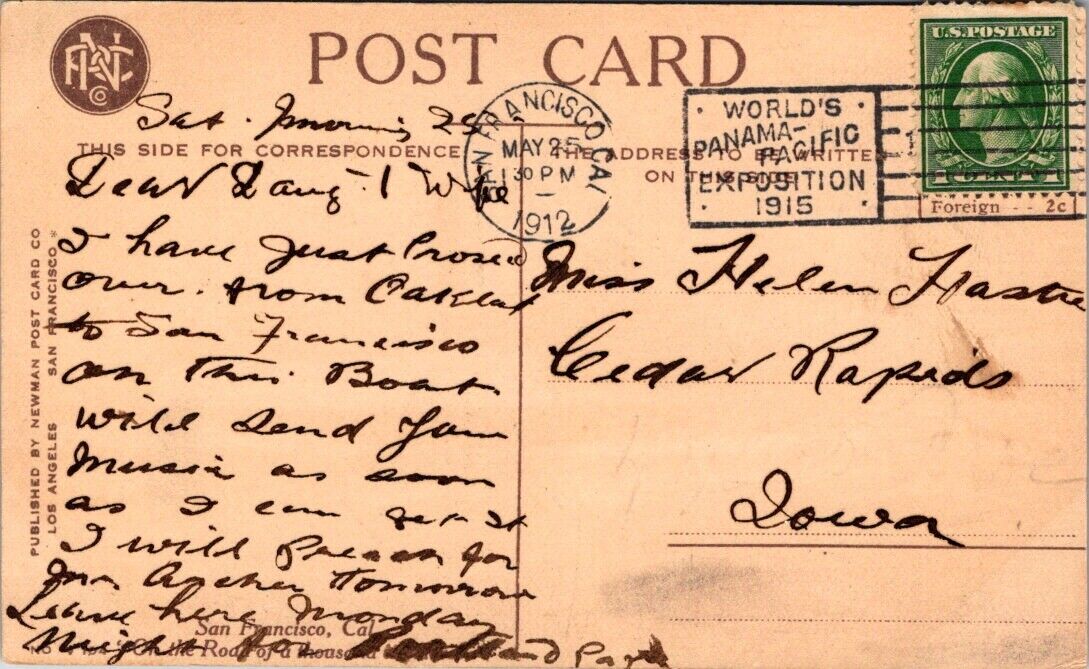 POST CARD
Sat. morning 25
THIS SIDE FOR CORRESPONDENCE
THE ADDRESS TO BE WRITTEN
ON THIS SIDE
SAN FRANCISCO, CAL
MAY 25
1 30 PM
1912
WORLD'S
PANAMA-
PACIFIC
EXPOSITION
1915
U.S. POSTAGE
Foreign -- 2c
Dear Daug &
I have just
over from Oakland
to San Francisco
on this Boat
will send your
Music as soon
as I can get it
I will Preach for
Archer tomorrow
Leave here Monday
Night for Portland
San Francisco, Cal
the Road of a thousand
Miss Helen
Cedar Rapids
Iowa
PUBLISHED BY NEWMAN POST CARD CO
LOS ANGELES SAN FRANCISCO